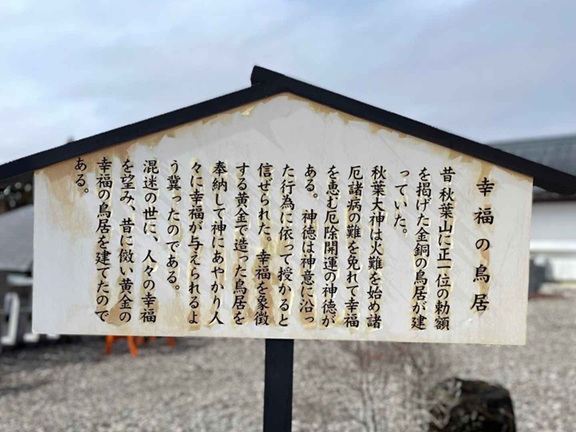 幸福の鳥居
昔 秋葉山に正一位の勅額
を掲げた金銅の鳥居が建
っていた。
秋葉大神は火難を始め諸
厄諸病の難を免れて幸福
を恵む厄除開運の神徳が
ある。神徳は神意に沿っ
た行為に依って授かると
信ぜられた。幸福を象徴
する黄金で造った鳥居を
奉納して神にあやかり人
々に幸福が与えられるよ
う冀ったのである。
混迷の世に、人々の幸福
を望み、昔に倣い黄金の
幸福の鳥居を建てたので
ある。